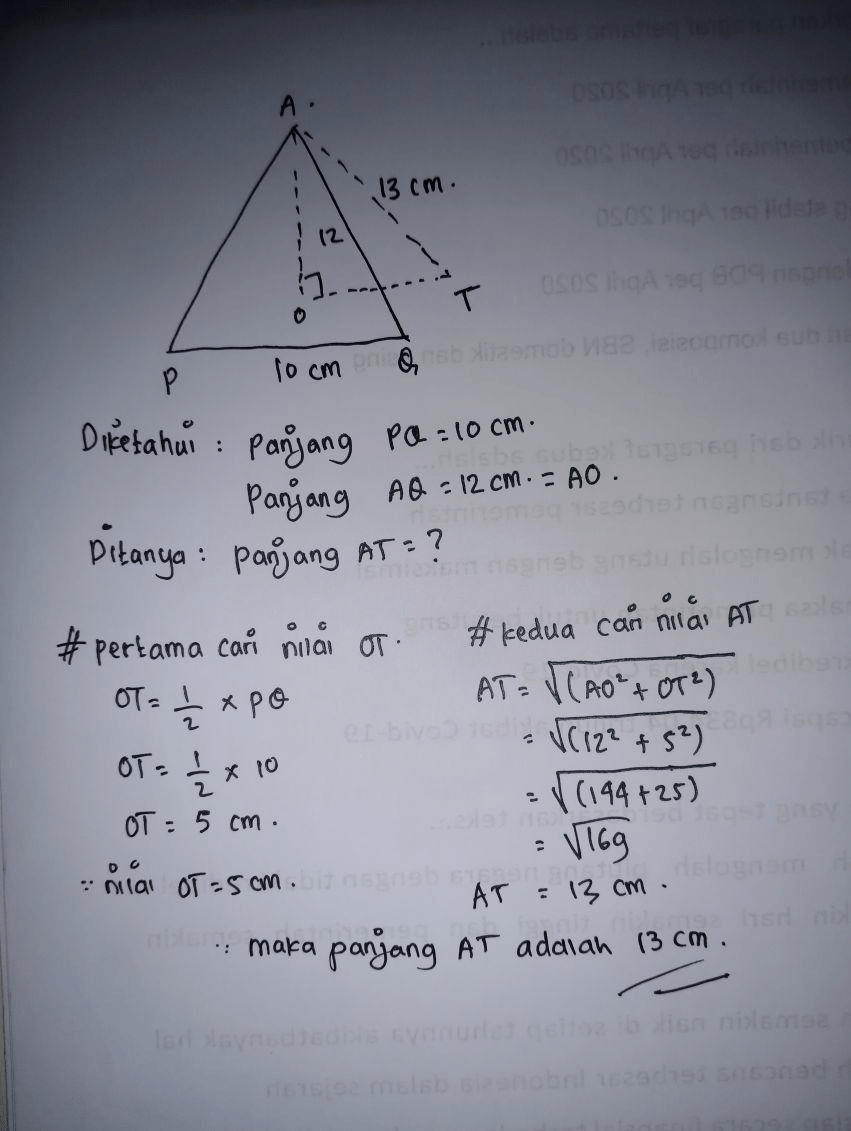 A.
13 cm.
12
O
T
P
10 cm
Q
Diketahui : Panjang PQ = 10 cm.
Panjang AQ = 12 cm. = AO.
Ditanya : panjang AT = ?
# pertama cari nilai OT.
OT = 1/2 x PQ
OT = 1/2 x 10
OT = 5 cm.
∵ nilai OT = 5 cm.
# kedua cari nilai AT
AT = √(AO² + OT²)
= √(12² + 5²)
= √(144 + 25)
= √169
AT = 13 cm.
∵ maka panjang AT adalah 13 cm.